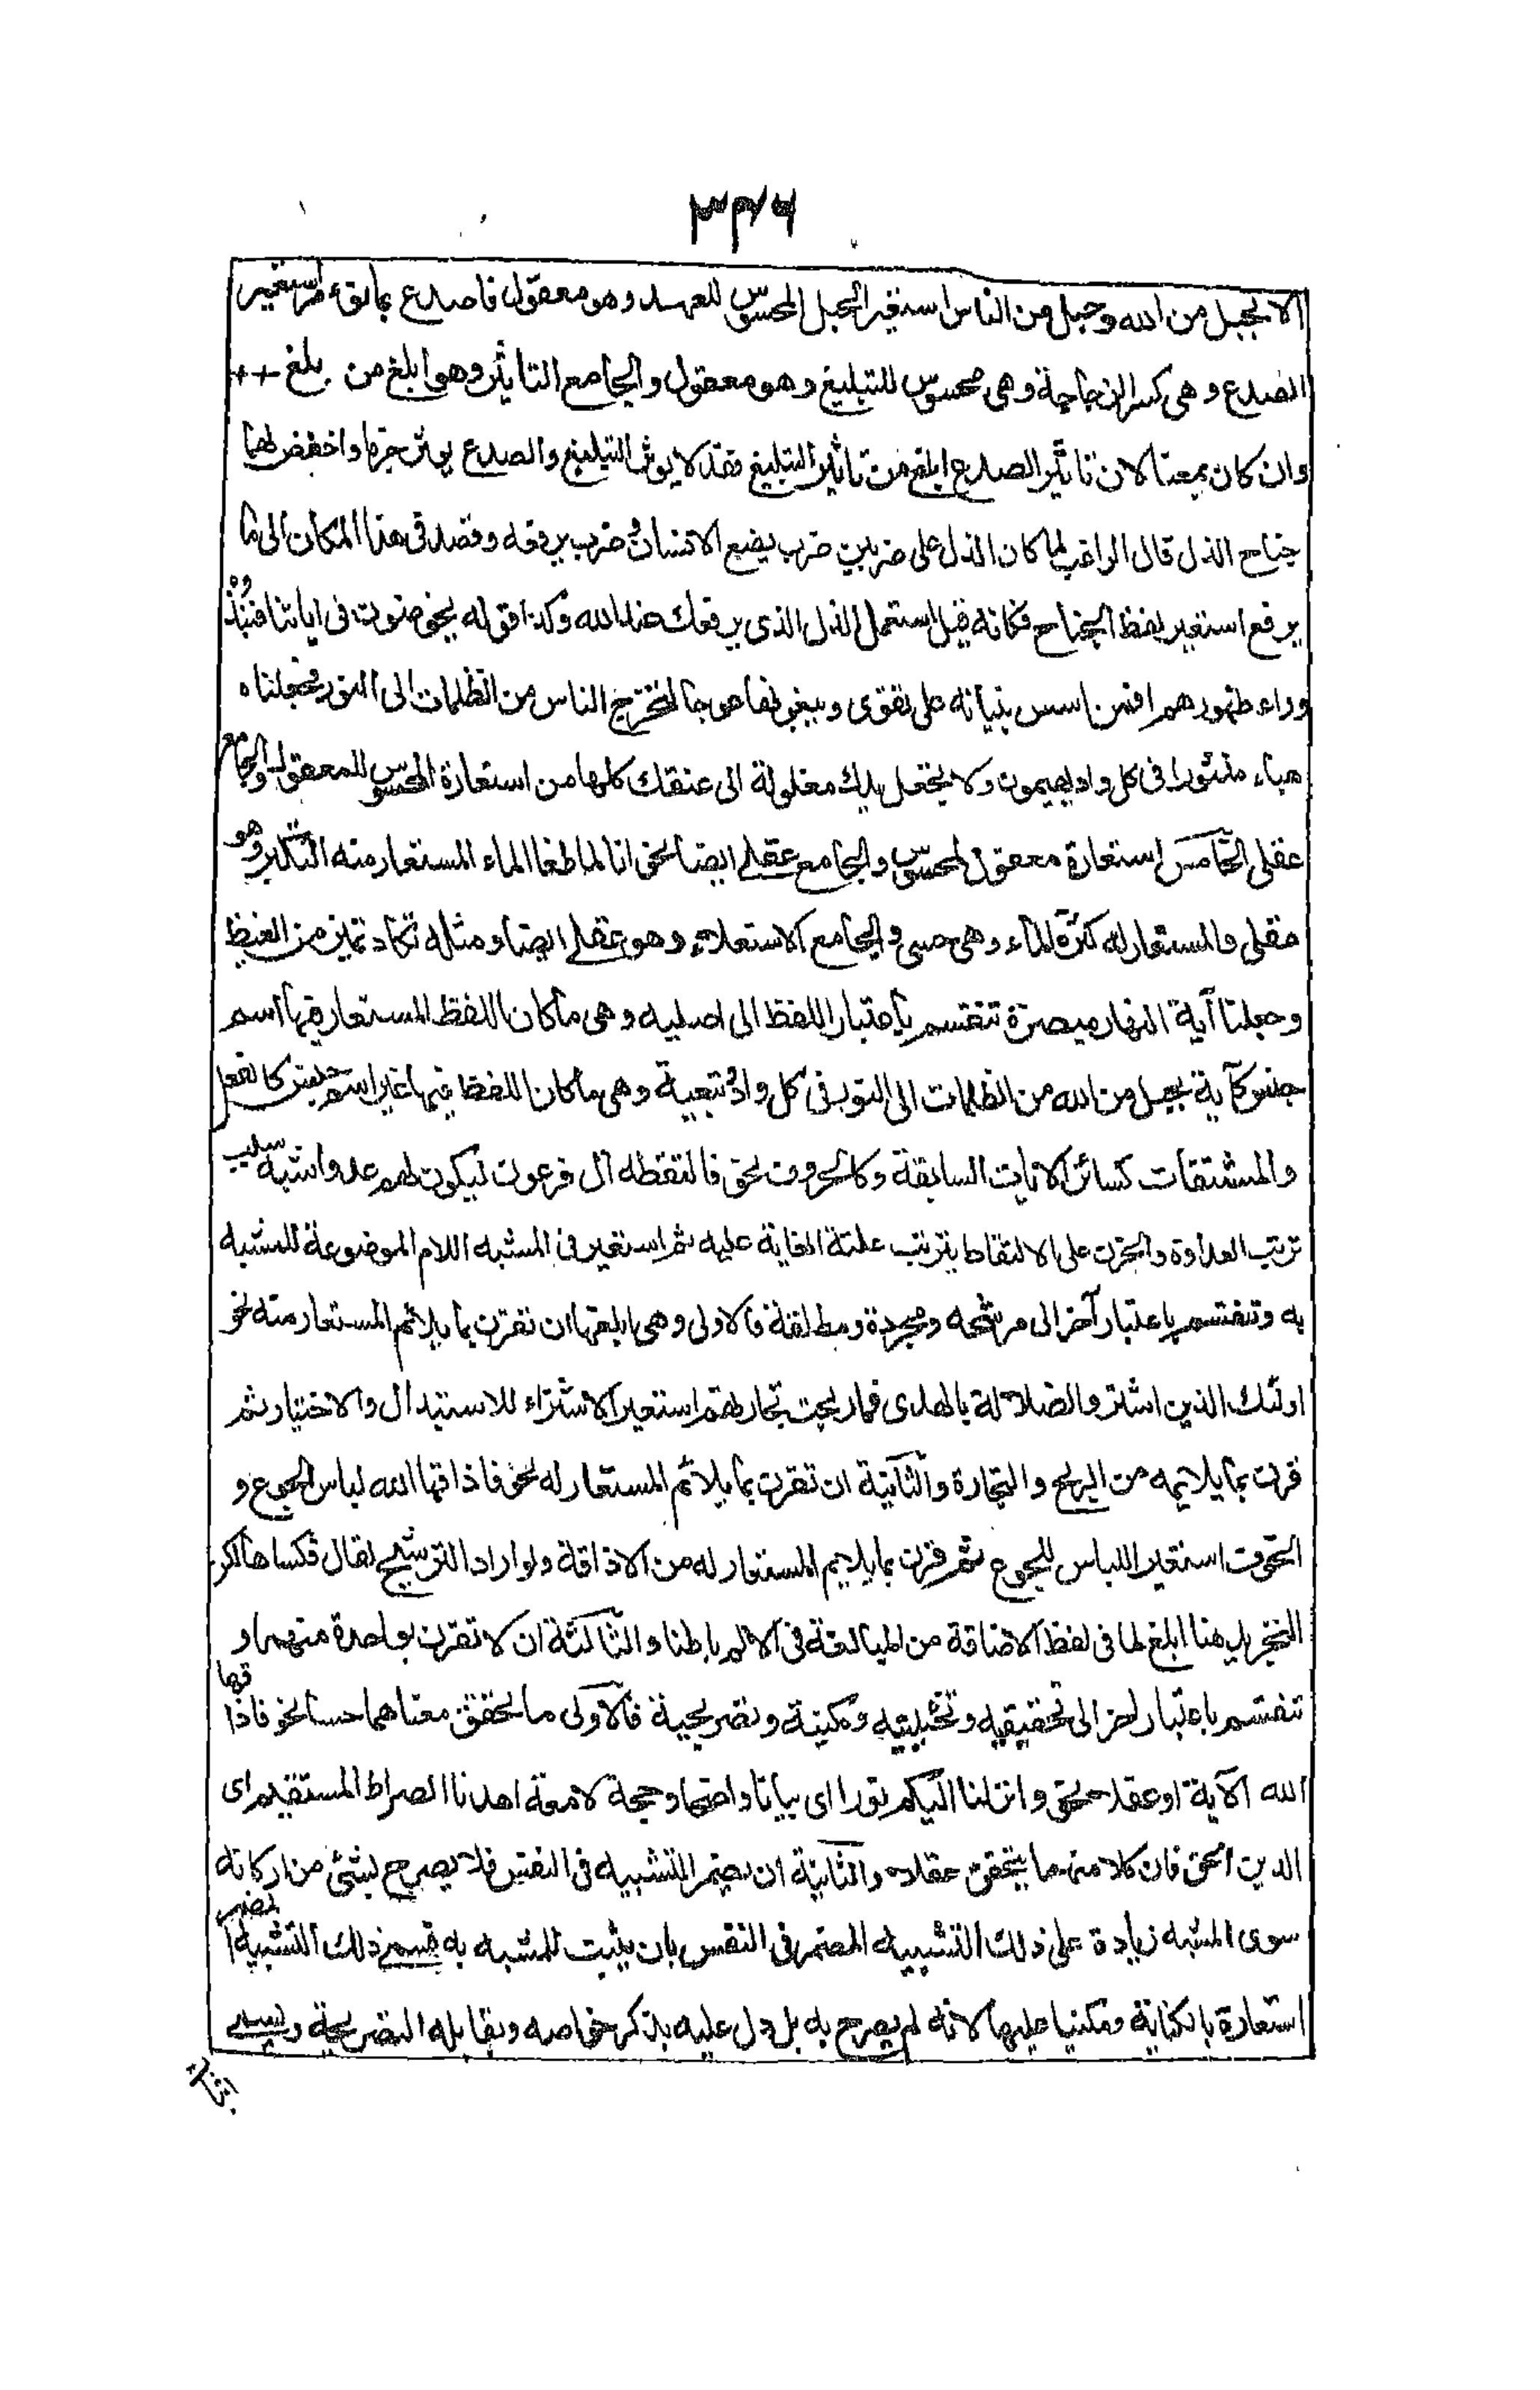 ٣٧٦
الا بحبل من الله وحبل من الناس استعير الحبل المحسوس للعهد وهو معقول فاصدع بما تؤمر استعير
الصدع وهى كسر الزجاجة وهى محسوس للتبليغ وهو معقول والجامع التاثير وهو ابلغ من بلغ
وان كان بمعنا لان تاثير الصدع ابلغ من تاثير التبليغ فقد لا يوثر التبليغ والصدع يوثر جزما واخفض لهما
جناح الذل قال الراغب لما كان الذل على ضربين ضرب يضع الانسان وضرب يرفعه وقصد فى هذا المكان الى ما
يرفع استعير لفظ الجناح فكانه قيل استعمل الذل الذى يرفعك عند الله وكذا قوله يخوضون فى اياتنا فنبذوه
وراء ظهورهم افمن اسس بنيانه على تقوى ويبغونها عوجا لتخرج الناس من الظلمات الى النور فجعلناه
هباء منثورا فى كل واد يهيمون ولا تجعل يدك مغلولة الى عنقك كلها من استعارة المحسوس للمعقول والجامع
عقلى الخامس استعارة معقول لمحسوس والجامع عقلے ايضا نحو انا لما طغا الماء المستعار منه التكبر وهو
عقلى والمستعار له كثرة الماء وهى حسى والجامع الاستعلاء وهو عقلے ايضا ومثله تكاد تميز من الغيظ
وجعلنا آية النهار مبصرة تنقسم باعتبار اللفظ الى اصليه وهى ما كان اللفظ المستعار فيها اسم
جنس كآية بحبل من الله من الظلمات الى النور فى كل واد وتبعية وهى ما كان اللفظ فيها غير اسم جنس كالفعل
والمشتقات كسائر الايات السابقة وكالحروف نحو فالتقطه آل فرعون ليكون لهم عدوا شبه
ترتب العداوة والحزن على الالتقاط بترتب علته الغاية عليه ثم استعير فى المشبه اللام الموضوعة للمشبه
به وتنقسم باعتبار آخر الى مرشحه ومجردة ومطلقة فالاولى وهى ابلغها ان تقرن بما يلائم المستعار منه نحو
اولئك الذين اشتروا الضلالة بالهدى فما ربحت تجارتهم استعير الاشتراء للاستبدال والاختيار ثم
قرن بما يلايمه من الربح والتجارة والثانية ان تقرن بما يلائم المستعار له نحو فاذاقها الله لباس الجوع و
الخوف استعير اللباس للجوع ثم قرن بما يلايم المستعار له من الاذاقة ولو اراد الترشيح لقال فكساها لكن
التجريد هنا ابلغ لما فى لفظ الاضاقة من المبالغة فى الالم باطنا والثالثة ان لا تقرن بواحدة منهما و
تنقسم باعتبار اخر الى تحقيقيه وتخييليه ومكنية وتصريحية فالاولى ما تحقق معناهما حسا نحو فاذاقها
الله الآية او عقلا نحو وانزلنا اليكم نورا اى بيانا واضحا وحجة لامعة اهدنا الصراط المستقيم اى
الدين الحق فان كلا منهما يتحقق عقلا والثانية ان يضمر التشبيه فى النفس فلا يصرح لشئ من اركانه
سوى المشبه زيادة على ذلك التشبيه المضمر فى النفس بان يثبت للمشبه به فسمى ذلك التشبيه المضمر
استعارة بالكناية ومكنيا عليها لانه لم يصرح به بل دل عليه بذكر خواصه ويقابله التصريحية ويسمے